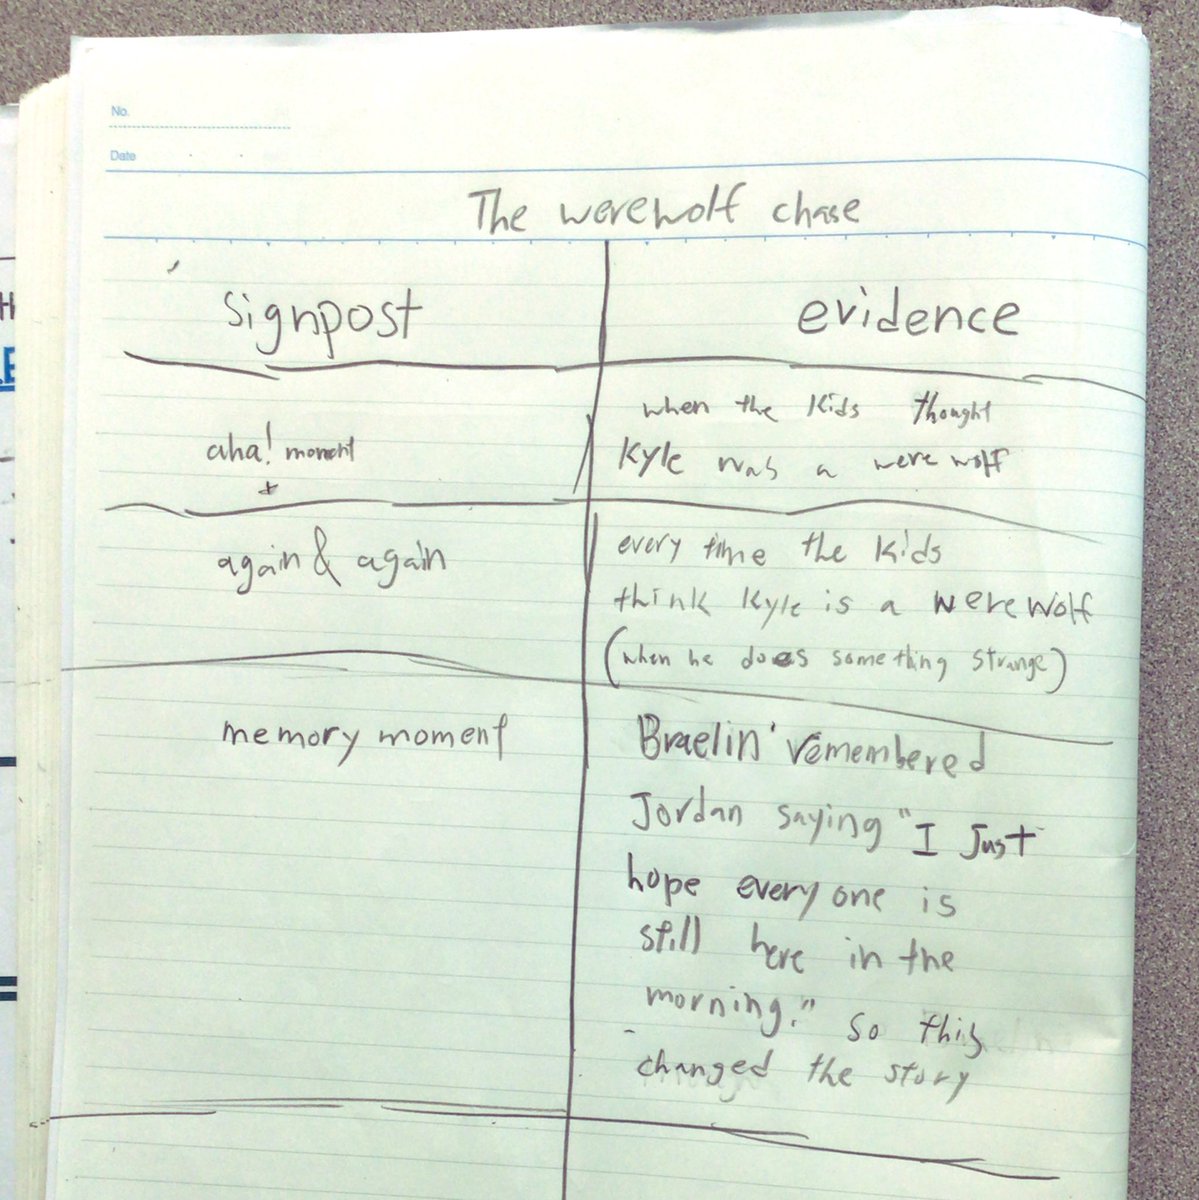 No.
Date
The werewolf chase
signpost
evidence
aha! moment
when the kids thought
Kyle was a were wolf
again & again
every time the kids
think Kyle is a werewolf
(when he does something strange)
memory moment
Braelin remembered
Jordan saying "I Just
hope everyone is
still here in the
morning." So this
changed the story